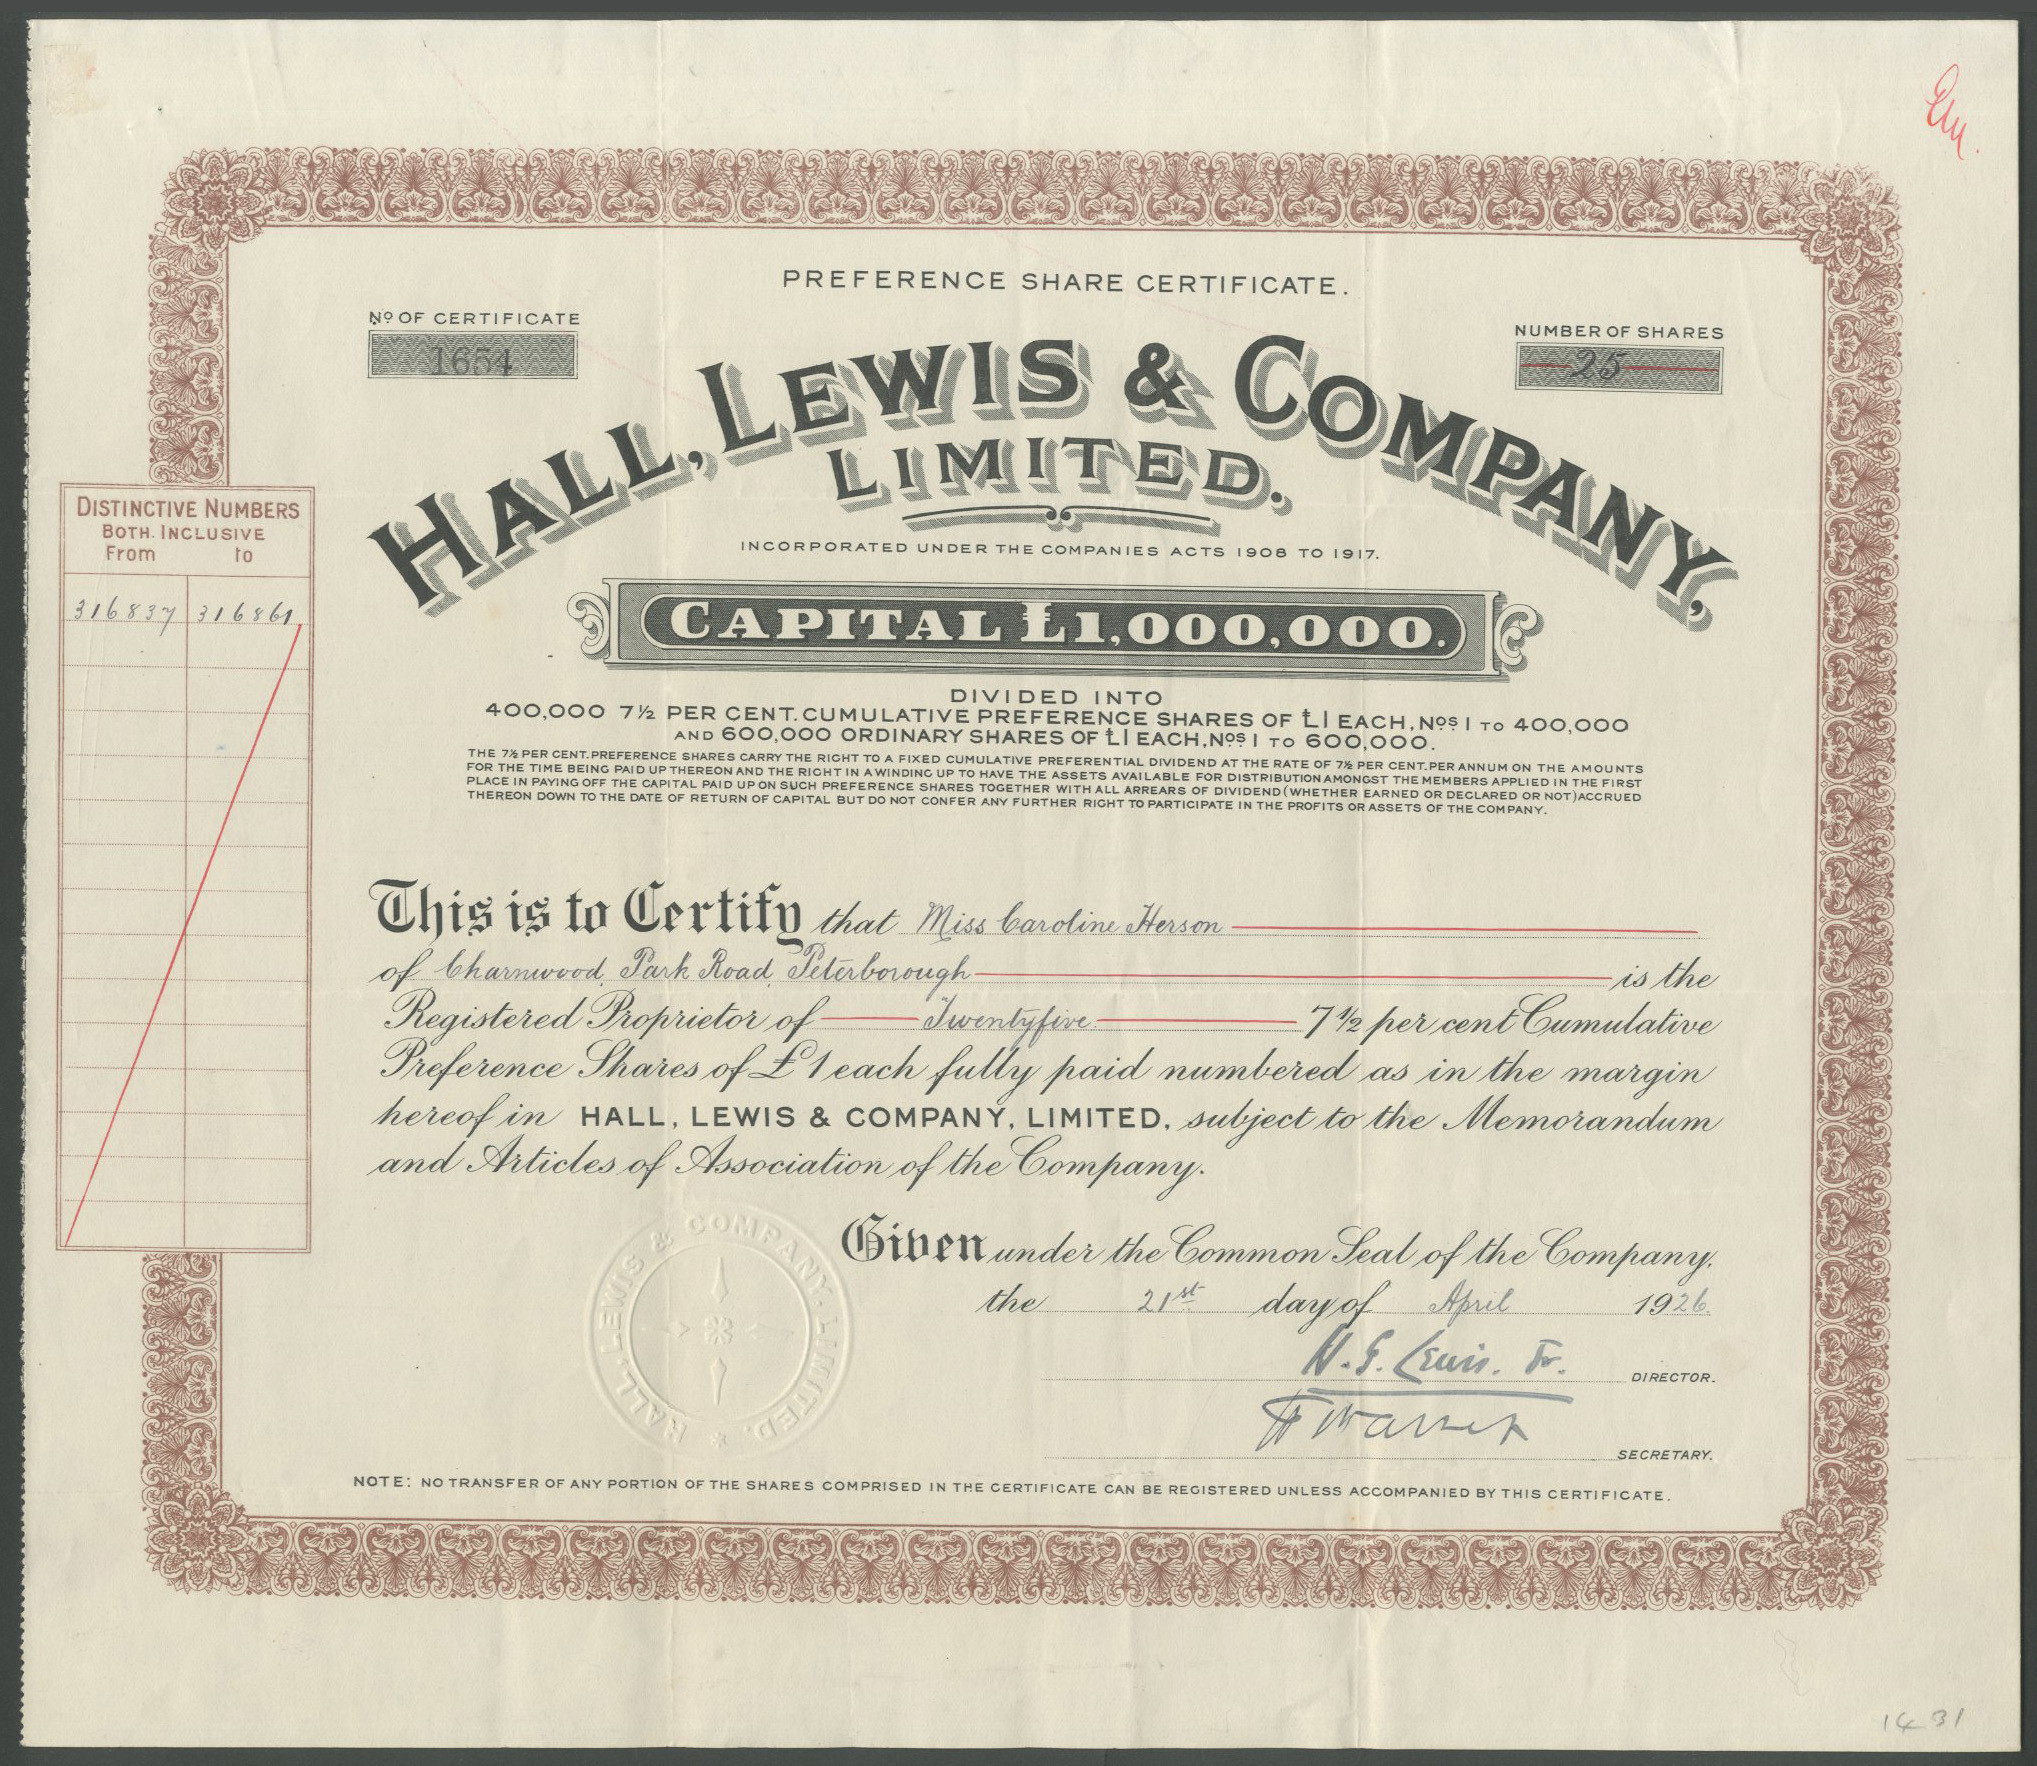 PREFERENCE SHARE CERTIFICATE.
Nº OF CERTIFICATE
1654
NUMBER OF SHARES
25
HALL, LEWIS & COMPANY,
LIMITED.
INCORPORATED UNDER THE COMPANIES ACTS 1908 TO 1917.
CAPITAL £1,000,000.
DIVIDED INTO
400,000 7½ PER CENT. CUMULATIVE PREFERENCE SHARES OF £1 EACH, Nos 1 TO 400,000
AND 600,000 ORDINARY SHARES OF £1 EACH, Nos 1 TO 600,000.
THE 7½ PER CENT. PREFERENCE SHARES CARRY THE RIGHT TO A FIXED CUMULATIVE PREFERENTIAL DIVIDEND AT THE RATE OF 7½ PER CENT. PER ANNUM ON THE AMOUNTS
FOR THE TIME BEING PAID UP THEREON AND THE RIGHT IN A WINDING UP TO HAVE THE ASSETS AVAILABLE FOR DISTRIBUTION AMONGST THE MEMBERS APPLIED IN THE FIRST
PLACE IN PAYING OFF THE CAPITAL PAID UP ON SUCH PREFERENCE SHARES TOGETHER WITH ALL ARREARS OF DIVIDEND (WHETHER EARNED OR DECLARED OR NOT) ACCRUED
THEREON DOWN TO THE DATE OF RETURN OF CAPITAL BUT DO NOT CONFER ANY FURTHER RIGHT TO PARTICIPATE IN THE PROFITS OR ASSETS OF THE COMPANY.
DISTINCTIVE NUMBERS
BOTH INCLUSIVE
From to
316837 316861
This is to Certify that Miss Caroline Herson
of Charnwood, Park Road, Peterborough is the
Registered Proprietor of Twentyfive 7½ per cent Cumulative
Preference Shares of £1 each fully paid numbered as in the margin
hereof in HALL, LEWIS & COMPANY, LIMITED, subject to the Memorandum
and Articles of Association of the Company.
Given under the Common Seal of the Company,
the 21st day of April 1926
H. G. Lewis. Jr. DIRECTOR.
SECRETARY.
HALL, LEWIS & COMPANY, LIMITED.
NOTE: NO TRANSFER OF ANY PORTION OF THE SHARES COMPRISED IN THE CERTIFICATE CAN BE REGISTERED UNLESS ACCOMPANIED BY THIS CERTIFICATE.
1431